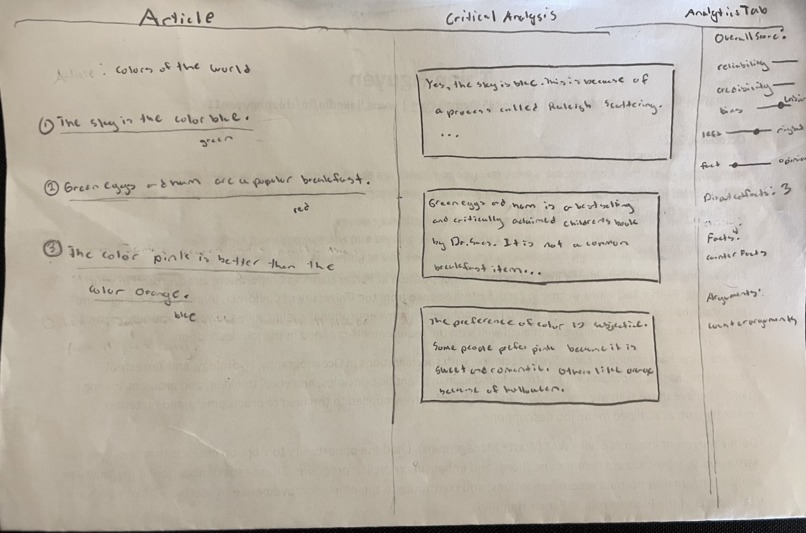 Article
Critical Analysis
Analytics Tab
colors of the world
① The sky is the color blue.
green
② Green eggs and ham are a popular breakfast.
red
③ The color pink is better than the
color orange.
blue
Yes, the sky is blue. This is because of
a process called Raleigh Scattering.
...
Green eggs and ham is a best selling
and critically acclaimed children's book
by Dr. Sues. It is not a common
breakfast item...
The preference of color is subjective.
Some people prefer pink because it is
sweet and romantic. Others like orange
because of halloween.
Overall Score:
reliability
credibility
bias
left right
fact opinion
facts: 3
Facts:
counter facts
Arguments:
counterarguments